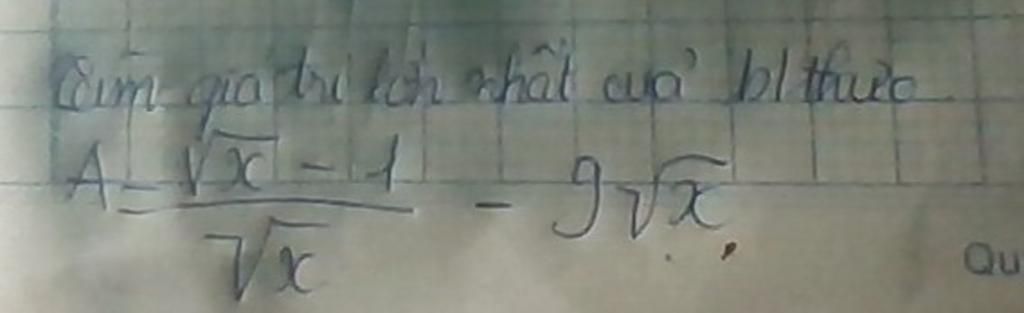 Tìm giá trị lớn nhất của b/thức
A = \frac{\sqrt{x} - 1}{\sqrt{x}} - 9\sqrt{x}
Qu